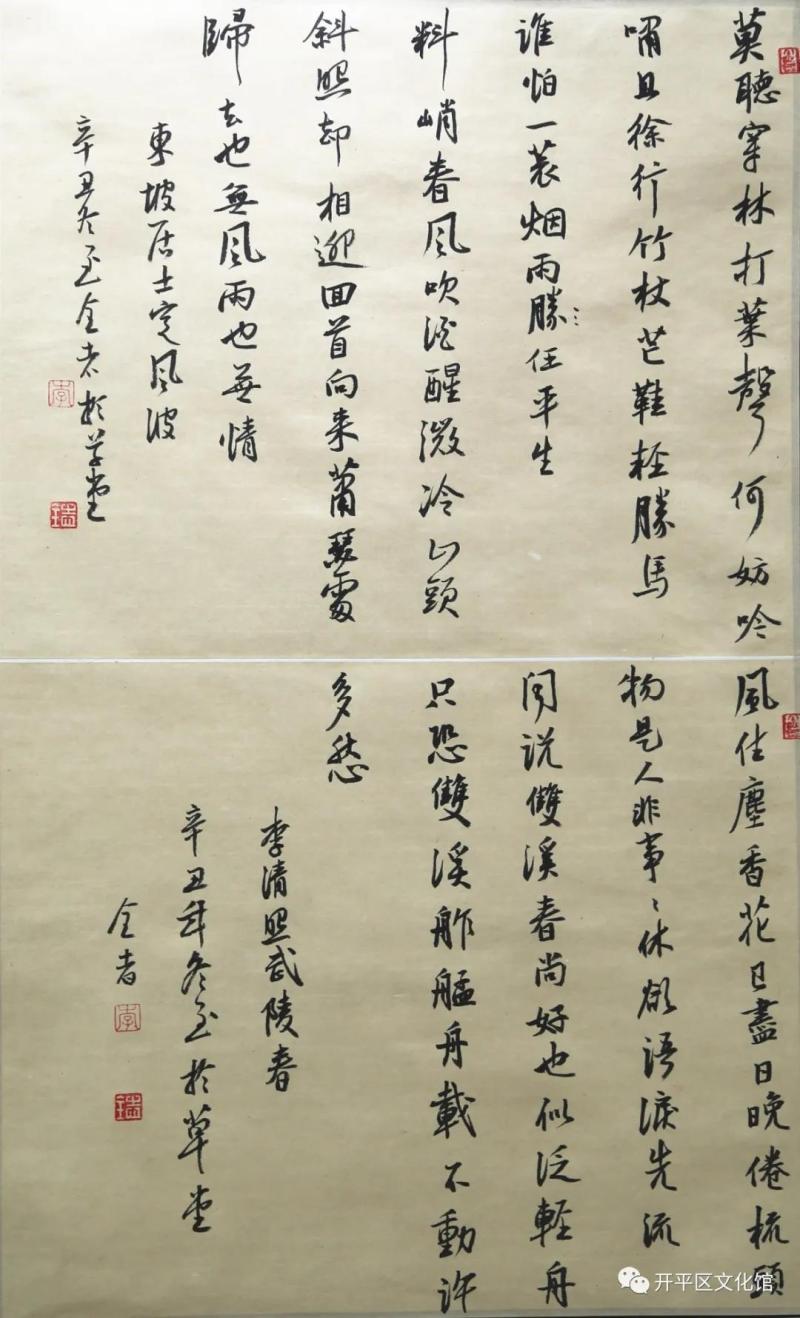 莫聽穿林打葉聲何妨吟
嘯且徐行竹杖芒鞋輕勝馬
誰怕一蓑烟雨勝任平生
料峭春風吹酒醒微冷山頭
斜照却相迎回首向来蕭瑟處
歸去也無風雨也無情
東坡居士定風波
辛丑冬至全者於草堂
李
瑞
風住塵香花已盡日晚倦梳頭
物是人非事〻休欲語淚先流
聞説雙溪春尚好也似泛輕舟
只恐雙溪舴艋舟載不動許
多愁
李清照武陵春
辛丑年冬至於草堂
全者
李
瑞
开平区文化馆